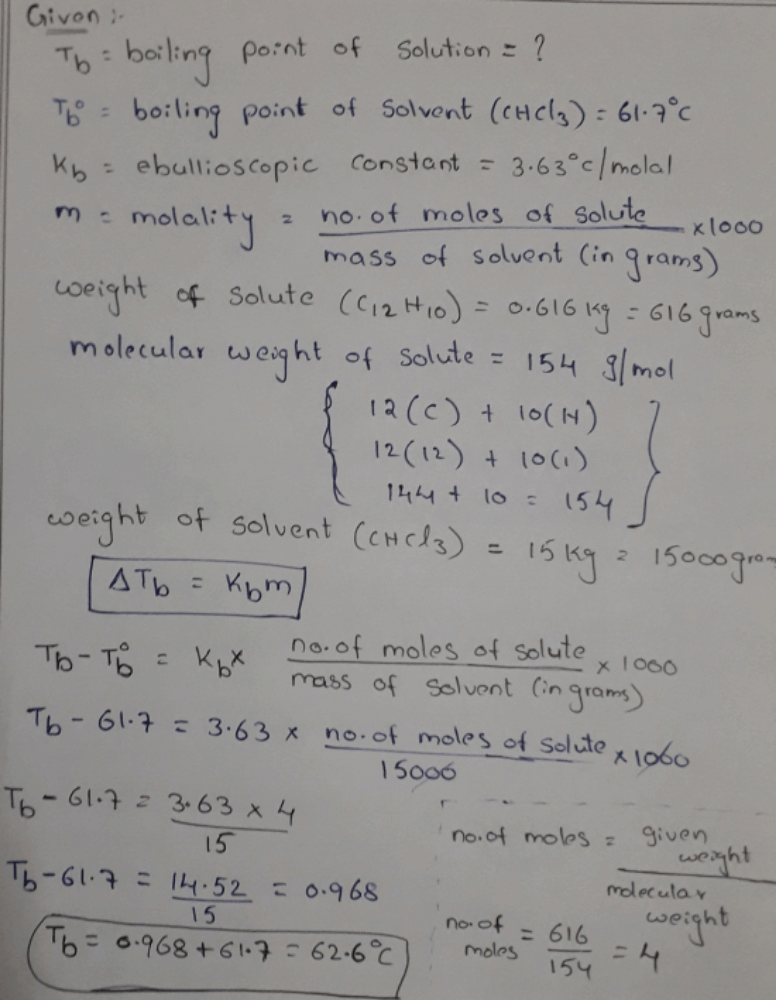 Given :-
Tb = boiling point of solution = ?
Tb° = boiling point of solvent (CHCl3) = 61.7°C
Kb = ebullioscopic constant = 3.63°C/molal
m = molality = no. of moles of solute / mass of solvent (in grams) x1000
weight of solute (C12H10) = 0.616 kg = 616 grams
molecular weight of solute = 154 g/mol
{ 12(C) + 10(H)
12(12) + 10(1)
144 + 10 = 154 }
weight of solvent (CHCl3) = 15 Kg = 15000gram
ΔTb = Kbm
Tb - Tb° = Kb x no. of moles of solute / mass of solvent (in grams) x 1000
Tb - 61.7 = 3.63 x no. of moles of solute / 15000 x 1000
Tb - 61.7 = 3.63 x 4 / 15
Tb - 61.7 = 14.52 / 15 = 0.968
Tb = 0.968 + 61.7 = 62.6°C
no. of moles = given weight / molecular weight
no. of moles = 616 / 154 = 4